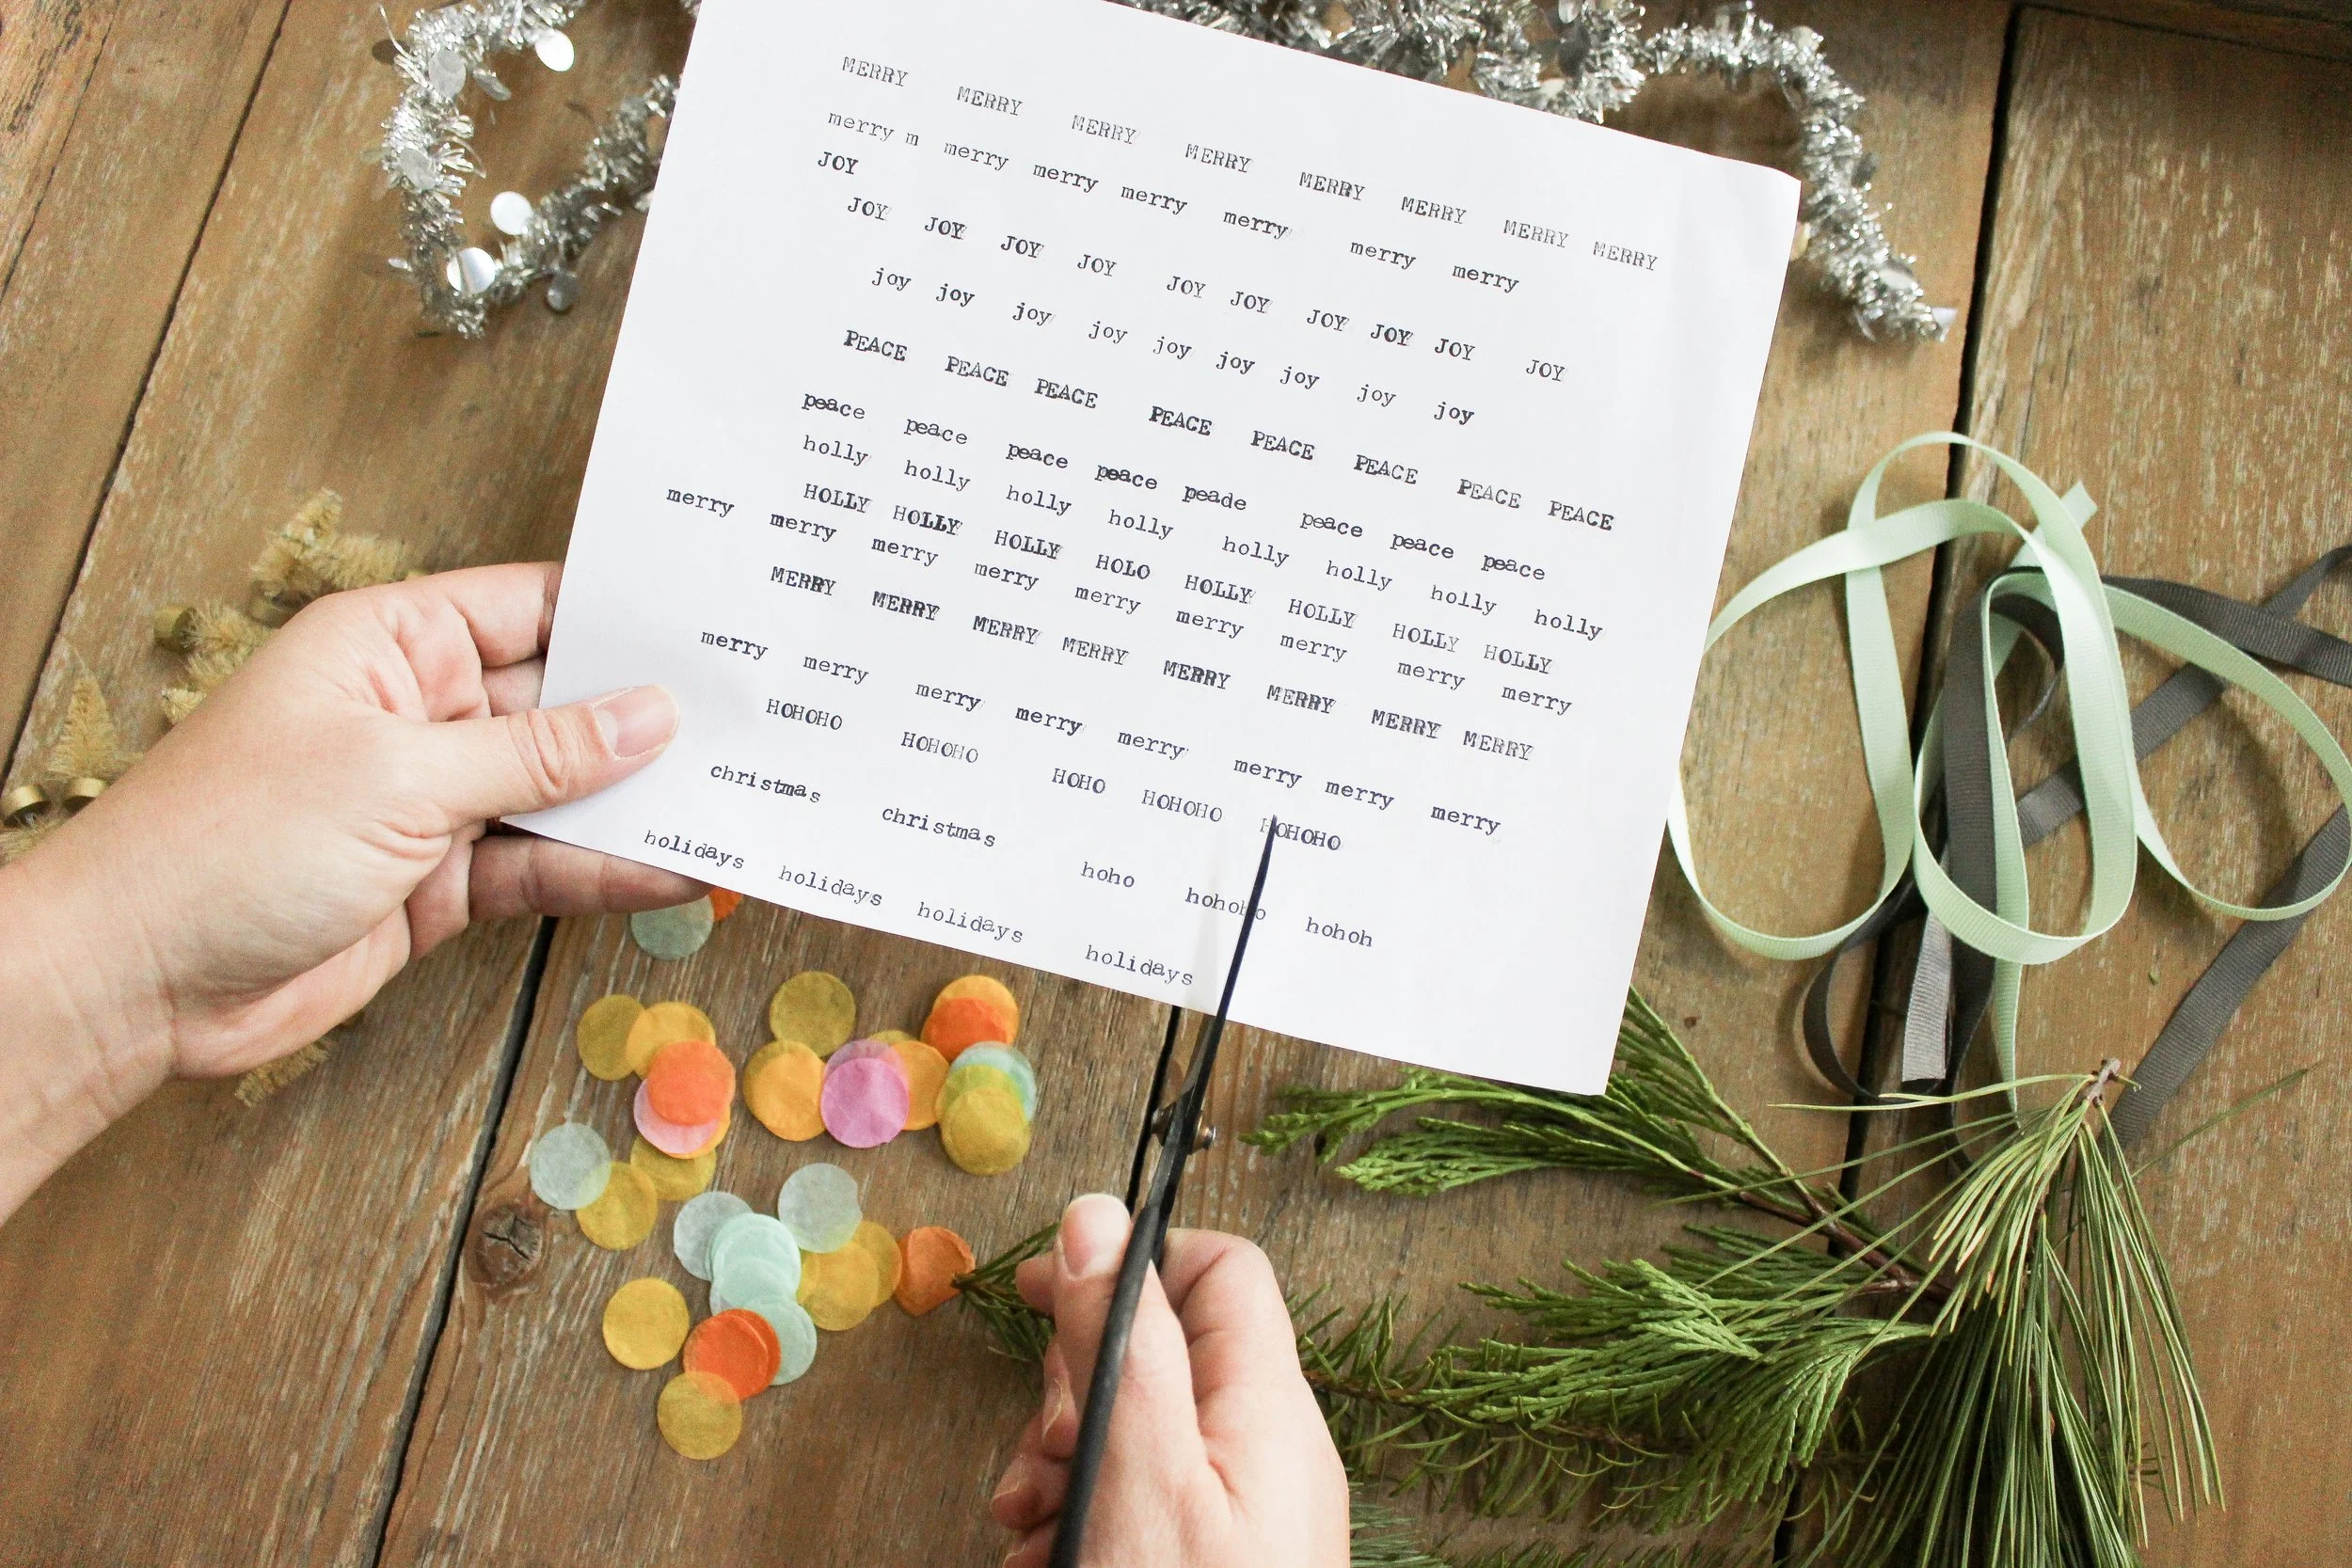 MERRY MERRY MERRY MERRY MERRY MERRY MERRY MERRY
merry m merry merry merry merry merry merry
JOY
JOY JOY JOY JOY JOY JOY JOY JOY JOY JOY
joy joy joy joy joy joy joy joy joy
PEACE PEACE PEACE PEACE PEACE PEACE PEACE PEACE
peace peace peace peace peade peace peace peace
holly holly holly holly holly holly holly holly
HOLLY HOLLY HOLLY HOLO HOLLY HOLLY HOLLY HOLLY
merry merry merry merry merry merry merry merry merry
MERRY MERRY MERRY MERRY MERRY MERRY MERRY MERRY
merry merry merry merry merry merry merry merry
HOHOHO HOHOHO HOHO HOHOHO HOHOHO
christmas christmas hoho hohoho hohoh
holidays holidays holidays holidays